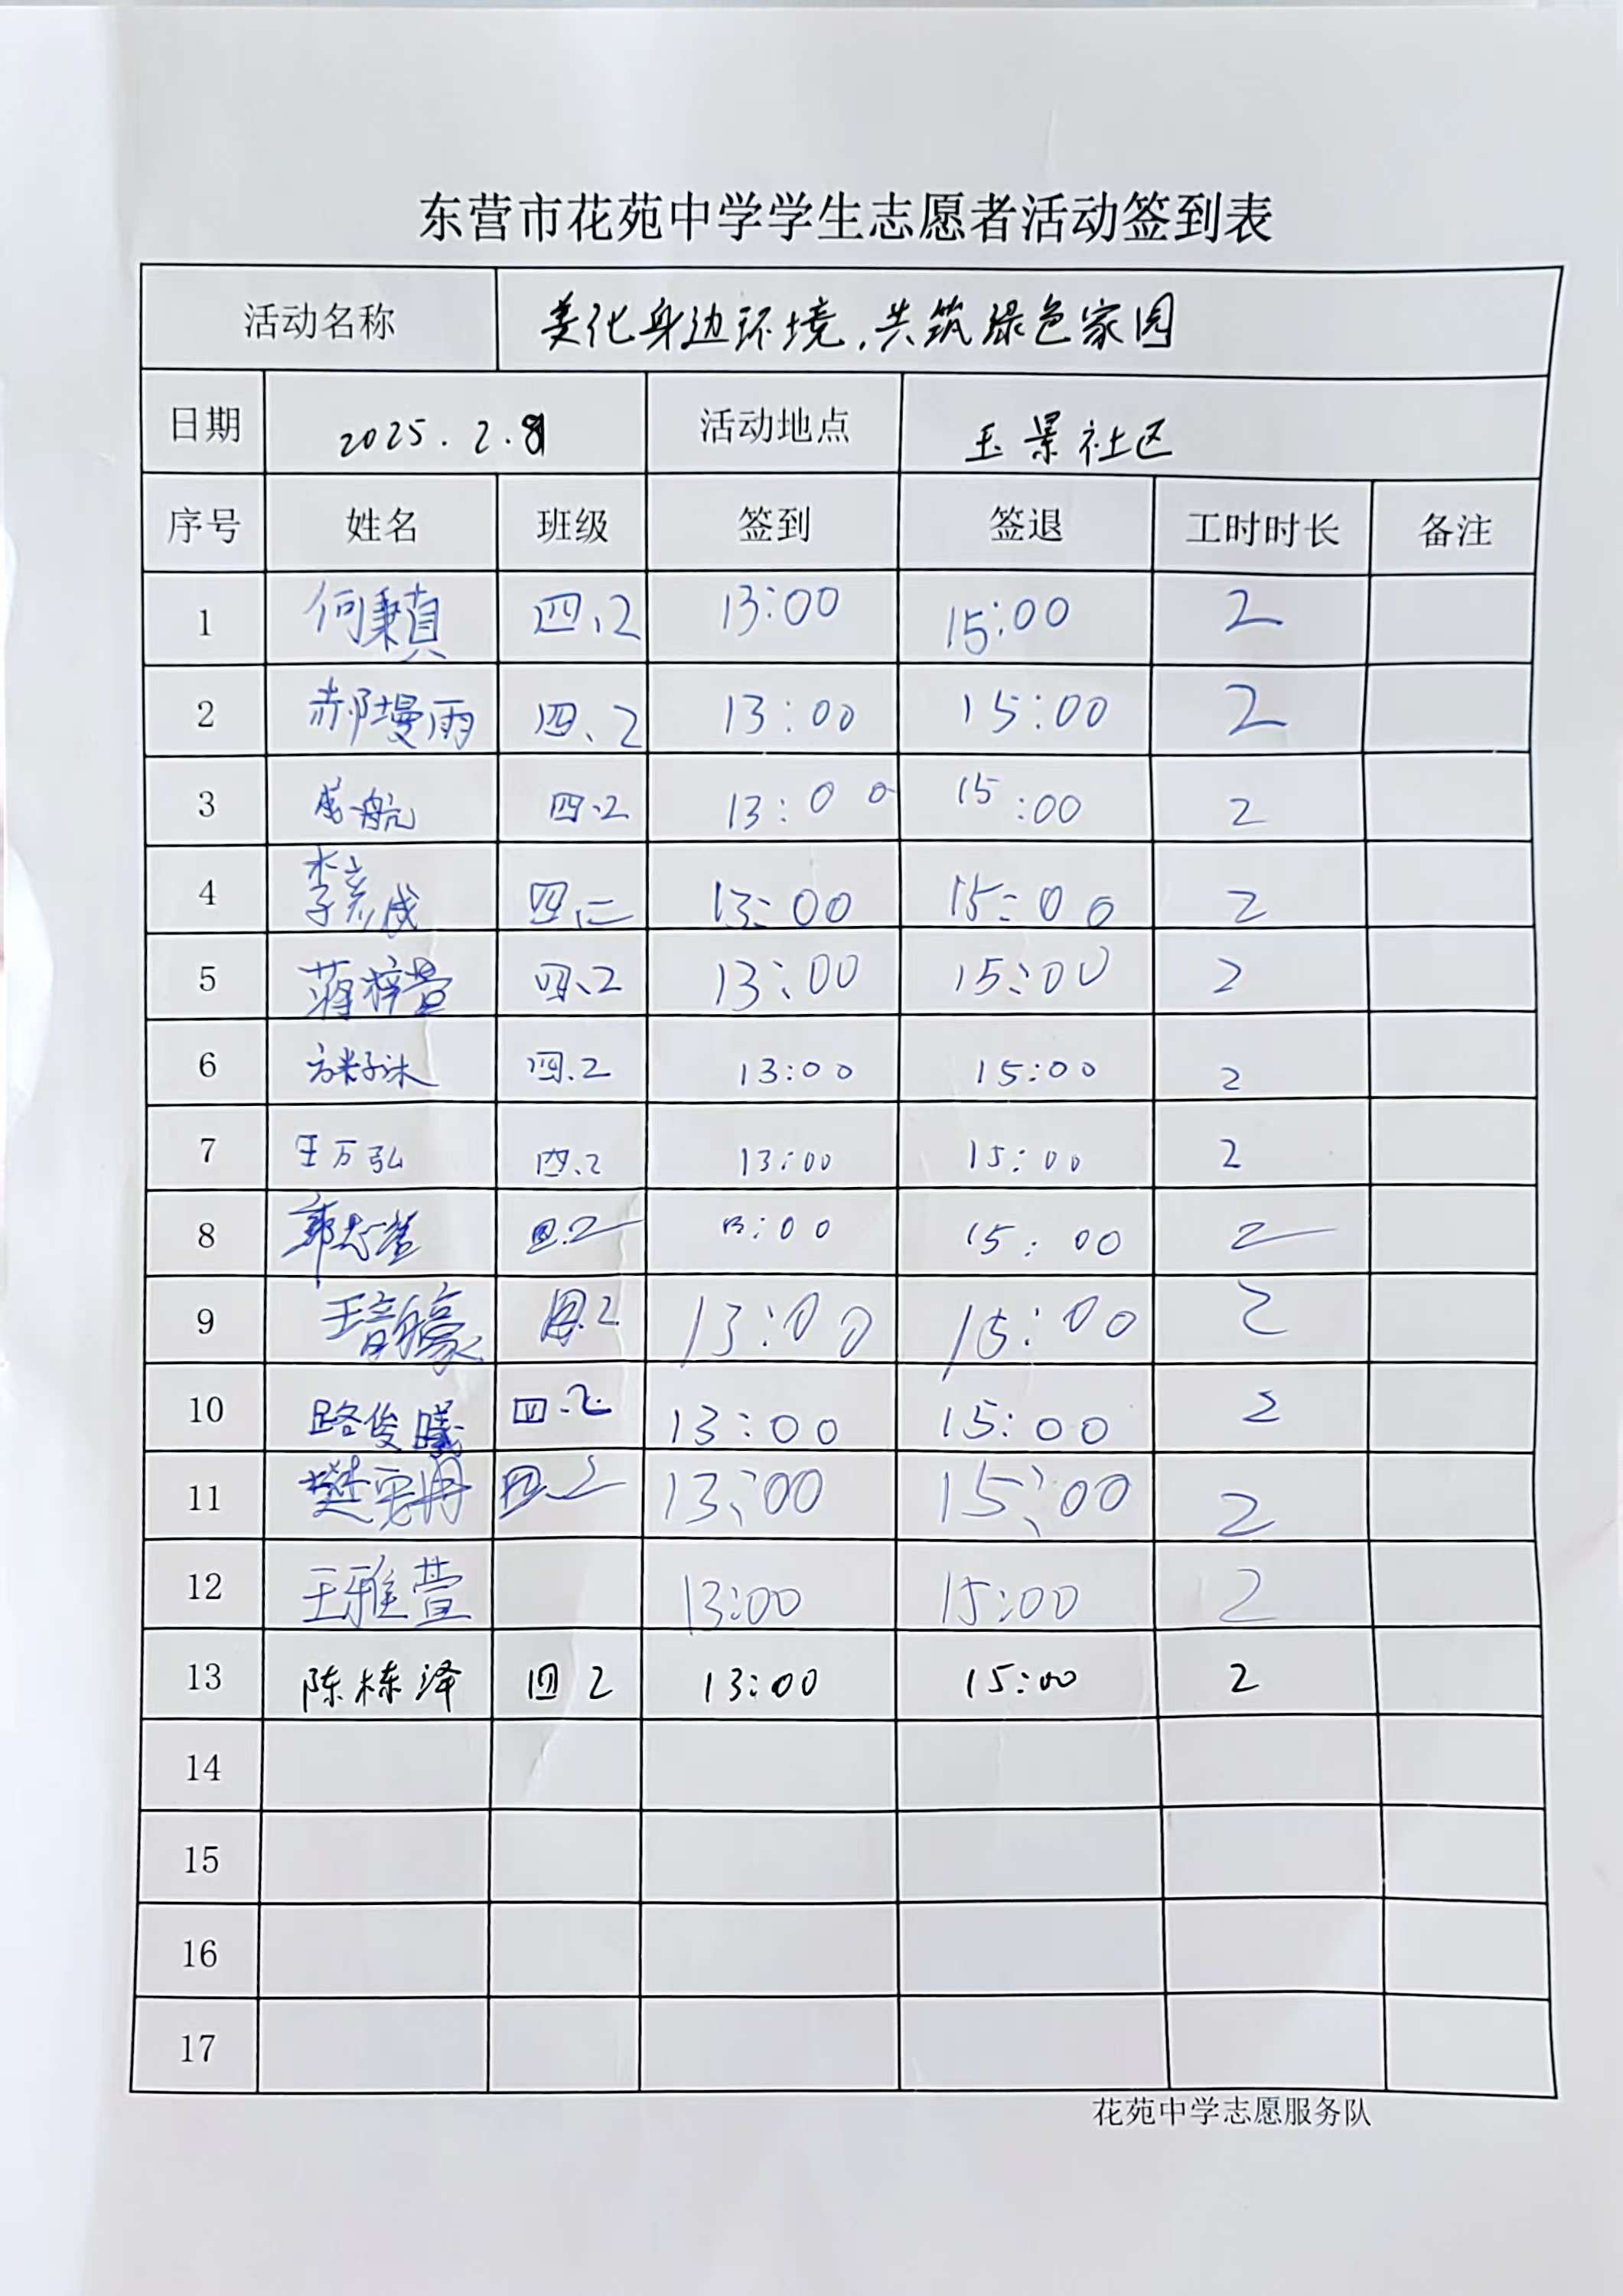 东营市花苑中学学生志愿者活动签到表
活动名称 美化身边环境,共筑绿色家园
日期 2025.2. 活动地点 玉景社区
序号 姓名 班级 签到 签退 工时时长 备注
1 何秉真 四、2 13:00 15:00 2
2 郝墁雨 四、2 13:00 15:00 2
3 四.2 13:00 15:00 2
4 李彦成 四.二 13:00 15:00 2
5 蒋梓萱 四、2 13:00 15:00 2
6 四.2 13:00 15:00 2
7 王万弘 四.2 13:00 15:00 2
8 四.2 13:00 15:00 2
9 王韵豪 四.2 13:00 15:00 2
10 路俊曦 四.2 13:00 15:00 2
11 四.2 13:00 15:00 2
12 王雅萱 13:00 15:00 2
13 陈栋泽 四 2 13:00 15:00 2
14
15
16
17
花苑中学志愿服务队